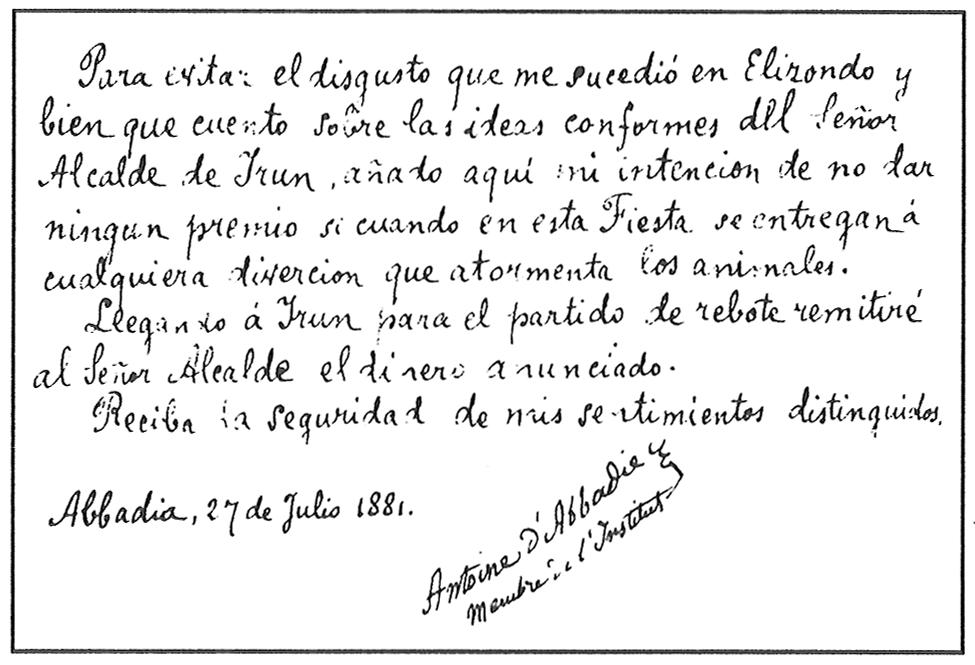 Para evitar el disgusto que me sucedió en Elizondo y
bien que cuento sobre las ideas conformes del Señor
Alcalde de Irun, añado aquí mi intencion de no dar
ningun premio si cuando en esta Fiesta se entregan á
cualquiera divercion que atormenta los animales.
Llegando á Irun para el partido de rebote remitiré
al Señor Alcalde el dinero anunciado.
Reciba la seguridad de mis sentimientos distinguidos.
Abbadia, 27 de Julio 1881.
Antoine D'Abbadie
Membre de l'Institut